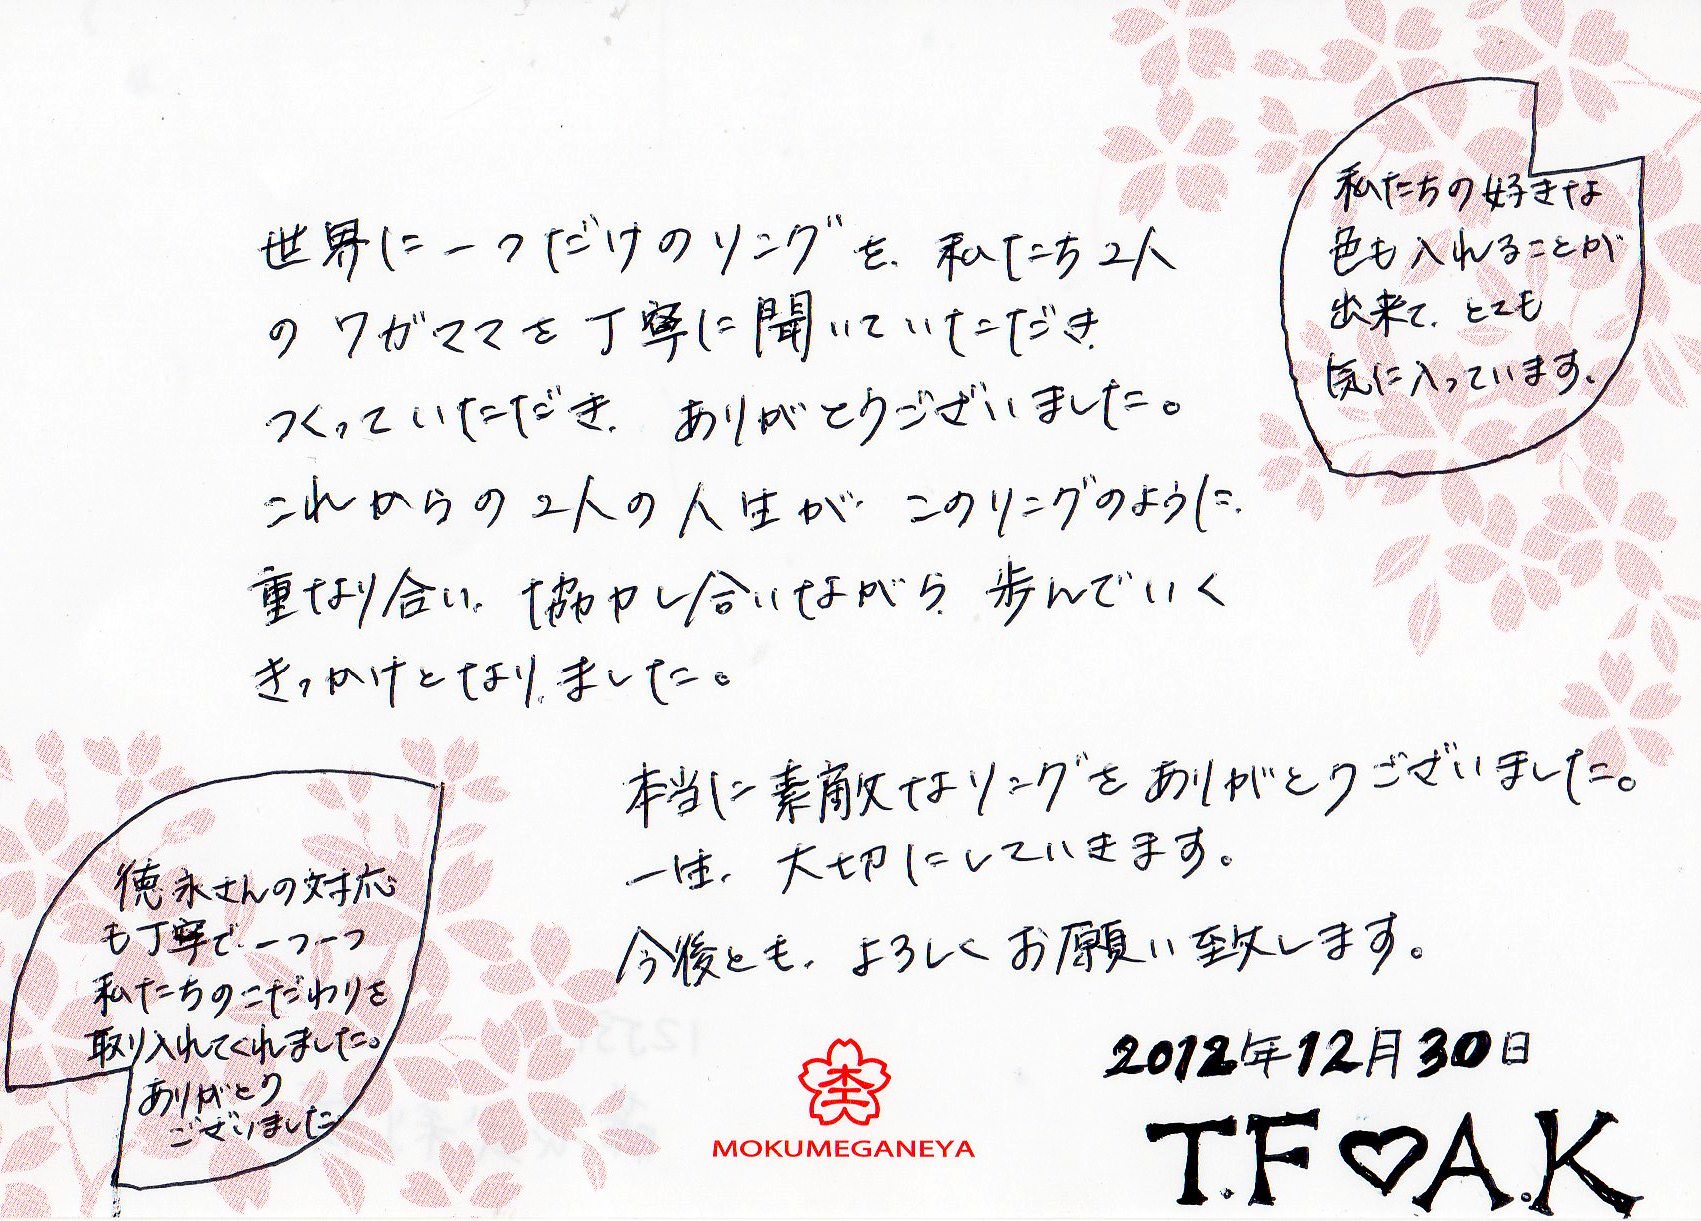 世界に一つだけのリングを、私たち2人
のワガママを丁寧に聞いていただき
つくっていただき、ありがとうございました。
これからの2人の人生が、このリングのように、
重なり合い、協力し合いながら、歩んでいく
きっかけとなりました。
本当に素敵なリングをありがとうございました。
一生、大切にしていきます。
今後とも、よろしくお願い致します。
私たちの好きな
色も入れることが
出来て、とても
気に入っています。
徳永さんの対応
も丁寧で、一つ一つ
私たちのこだわりを
取り入れてくれました。
ありがとう
ございました
2012年12月30日
T.F♡A.K
杢
MOKUMEGANEYA